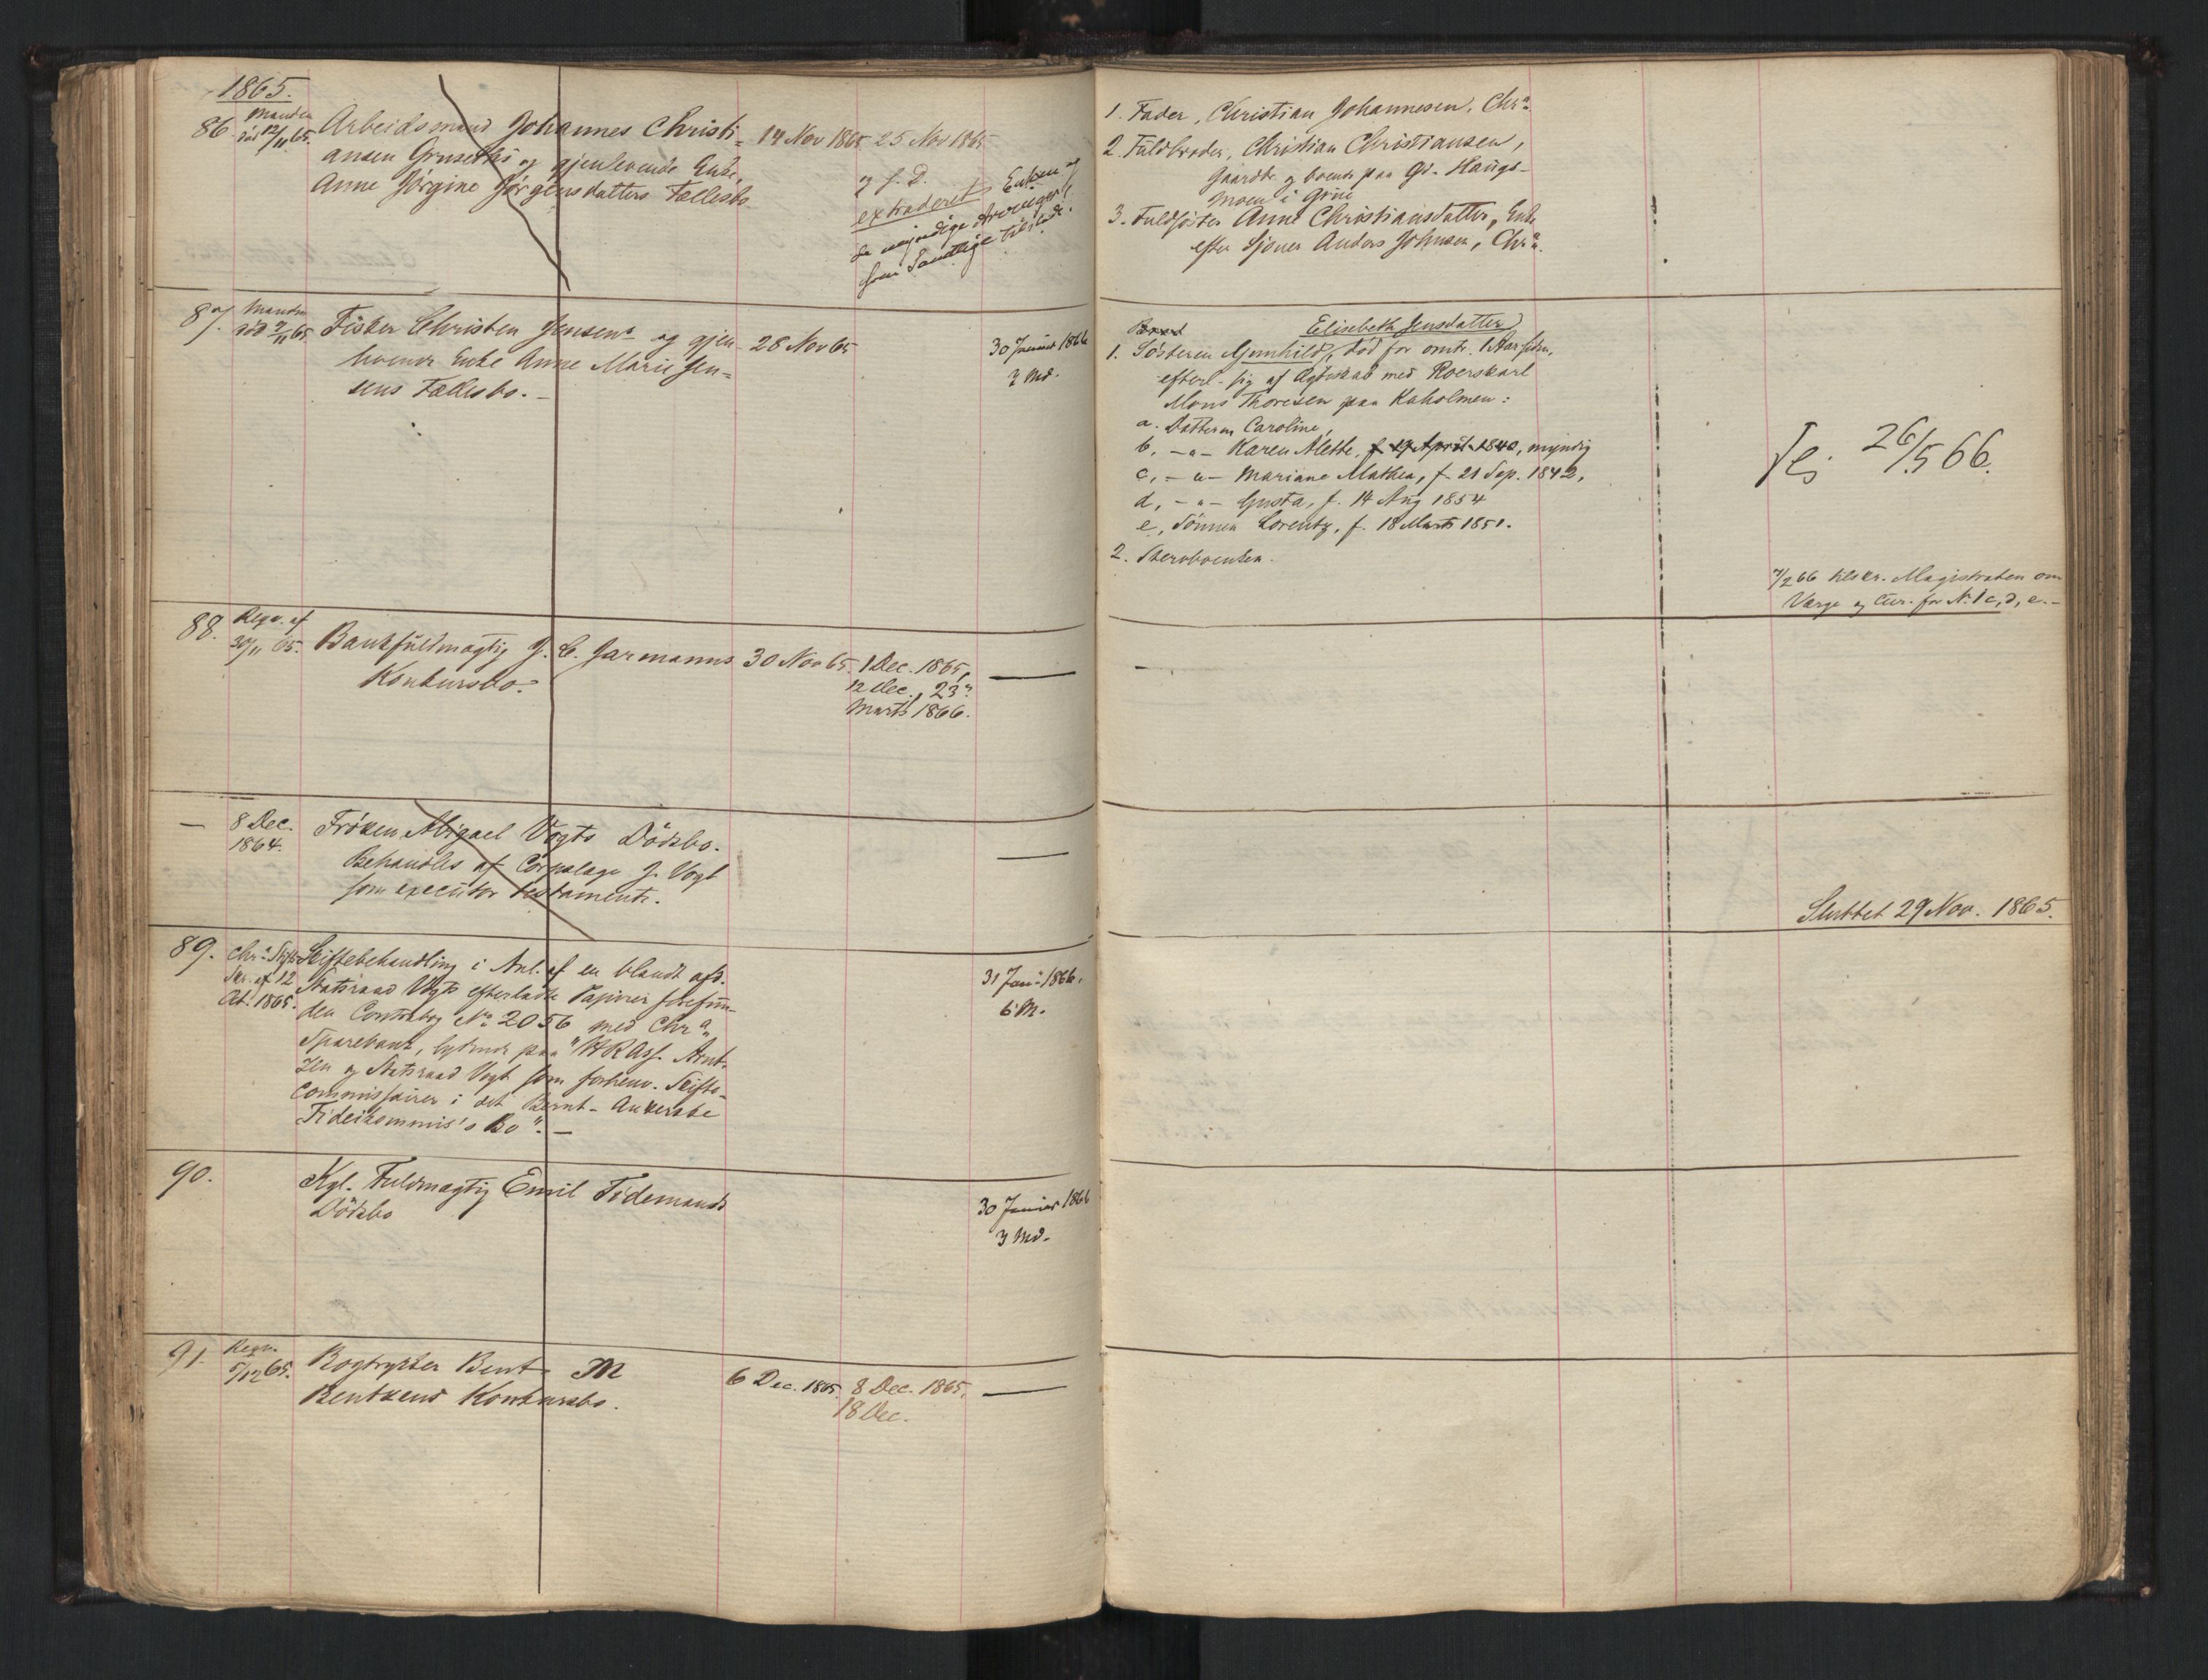 1865.
86. Manden død 12/11 65. Arbeidsmand Johannes Christi= 14 Nov 1865 25 Nov 1865
ansen Gruseths og gjenlevende Enke,
Anne Jørgine Jørgensdatters Fællesbo.
og s. D.
extraderet Enken og
de myndige Arvinger
som samtlige tilstede.
87. Manden død 9/11 65. Fisker Christen Jensens og gjen- 28 Nov 65 30 Januar 1866
levende Enke Anne Marie Jen= 3 Md.
sens Fællesbo.
88. Reqv. af 30/11 65. Bankfuldmægtig J. C. Garmanns 30 Nov 65. 1 Dec. 1865,
Konkursbo. 12 Dec., 23de
Marts 1866.
— 8 Dec. 1864. Frøken Abigael Vogts Dødsbo.
Behandles af Corpslæge J. Vogt
som executor testamenti.
89. Chra Stifts Skr. af 12 Oct. 1865. Skiftebehandling i Anl. af en blandt afd.
Statsraad Vogts efterladte Papirer forefun-
den Contrabog No 2056 med Chra
Sparebank, lydende paa "HRAss. Arnt-
zen og Statsraad Vogt som forhenv. Skifte-
commissairer i det Bernt-Ankerske
Fideikommis's Bo". —
31 Jan. 1866.
6 M.
90. Kgl. Fuldmægtig Emil Tidemands
Dødsbo
30 Januar 1866
3 Md.
91. Reqv. 5/12 65. Bogtrykker Bent M
Bentzens Konkursbo.
6 Dec. 1865. 8 Dec. 1865.
18 Dec.
1. Fader, Christian Johannesen, Chra
2. Fuldbroder, Christian Christiansen,
Gaardbr. og boende paa Gd. Haugs-
moen i Grue
3. Fuldsøster Anne Christiansdatter, Enke
efter Sjouer Anders Johnsen, Chra.
Elisebeth Jensdatter
1. Søsteren Gunhild, død for omtr. 1 Aar siden,
efterl. sig af Ægteskab med Roerskarl
Mons Thoresen paa Kaholmen:
a. Datteren Caroline,
b, -"- Karen Alette, f. 17 April 1840, myndig
c, -"- Mariane Mathea, f. 21 Sep. 1842,
d, -"- Gusta, f. 14 Aug 1854
e, Sønnen Lorentz, f. 18 Marts 1851.
2. Stervboenken.
26/5 66.
7/2 66 tilskr. Magistraten om
Værge og Cur. for N. 1 c, d, e. —
Sluttet 29 Nov. 1865.